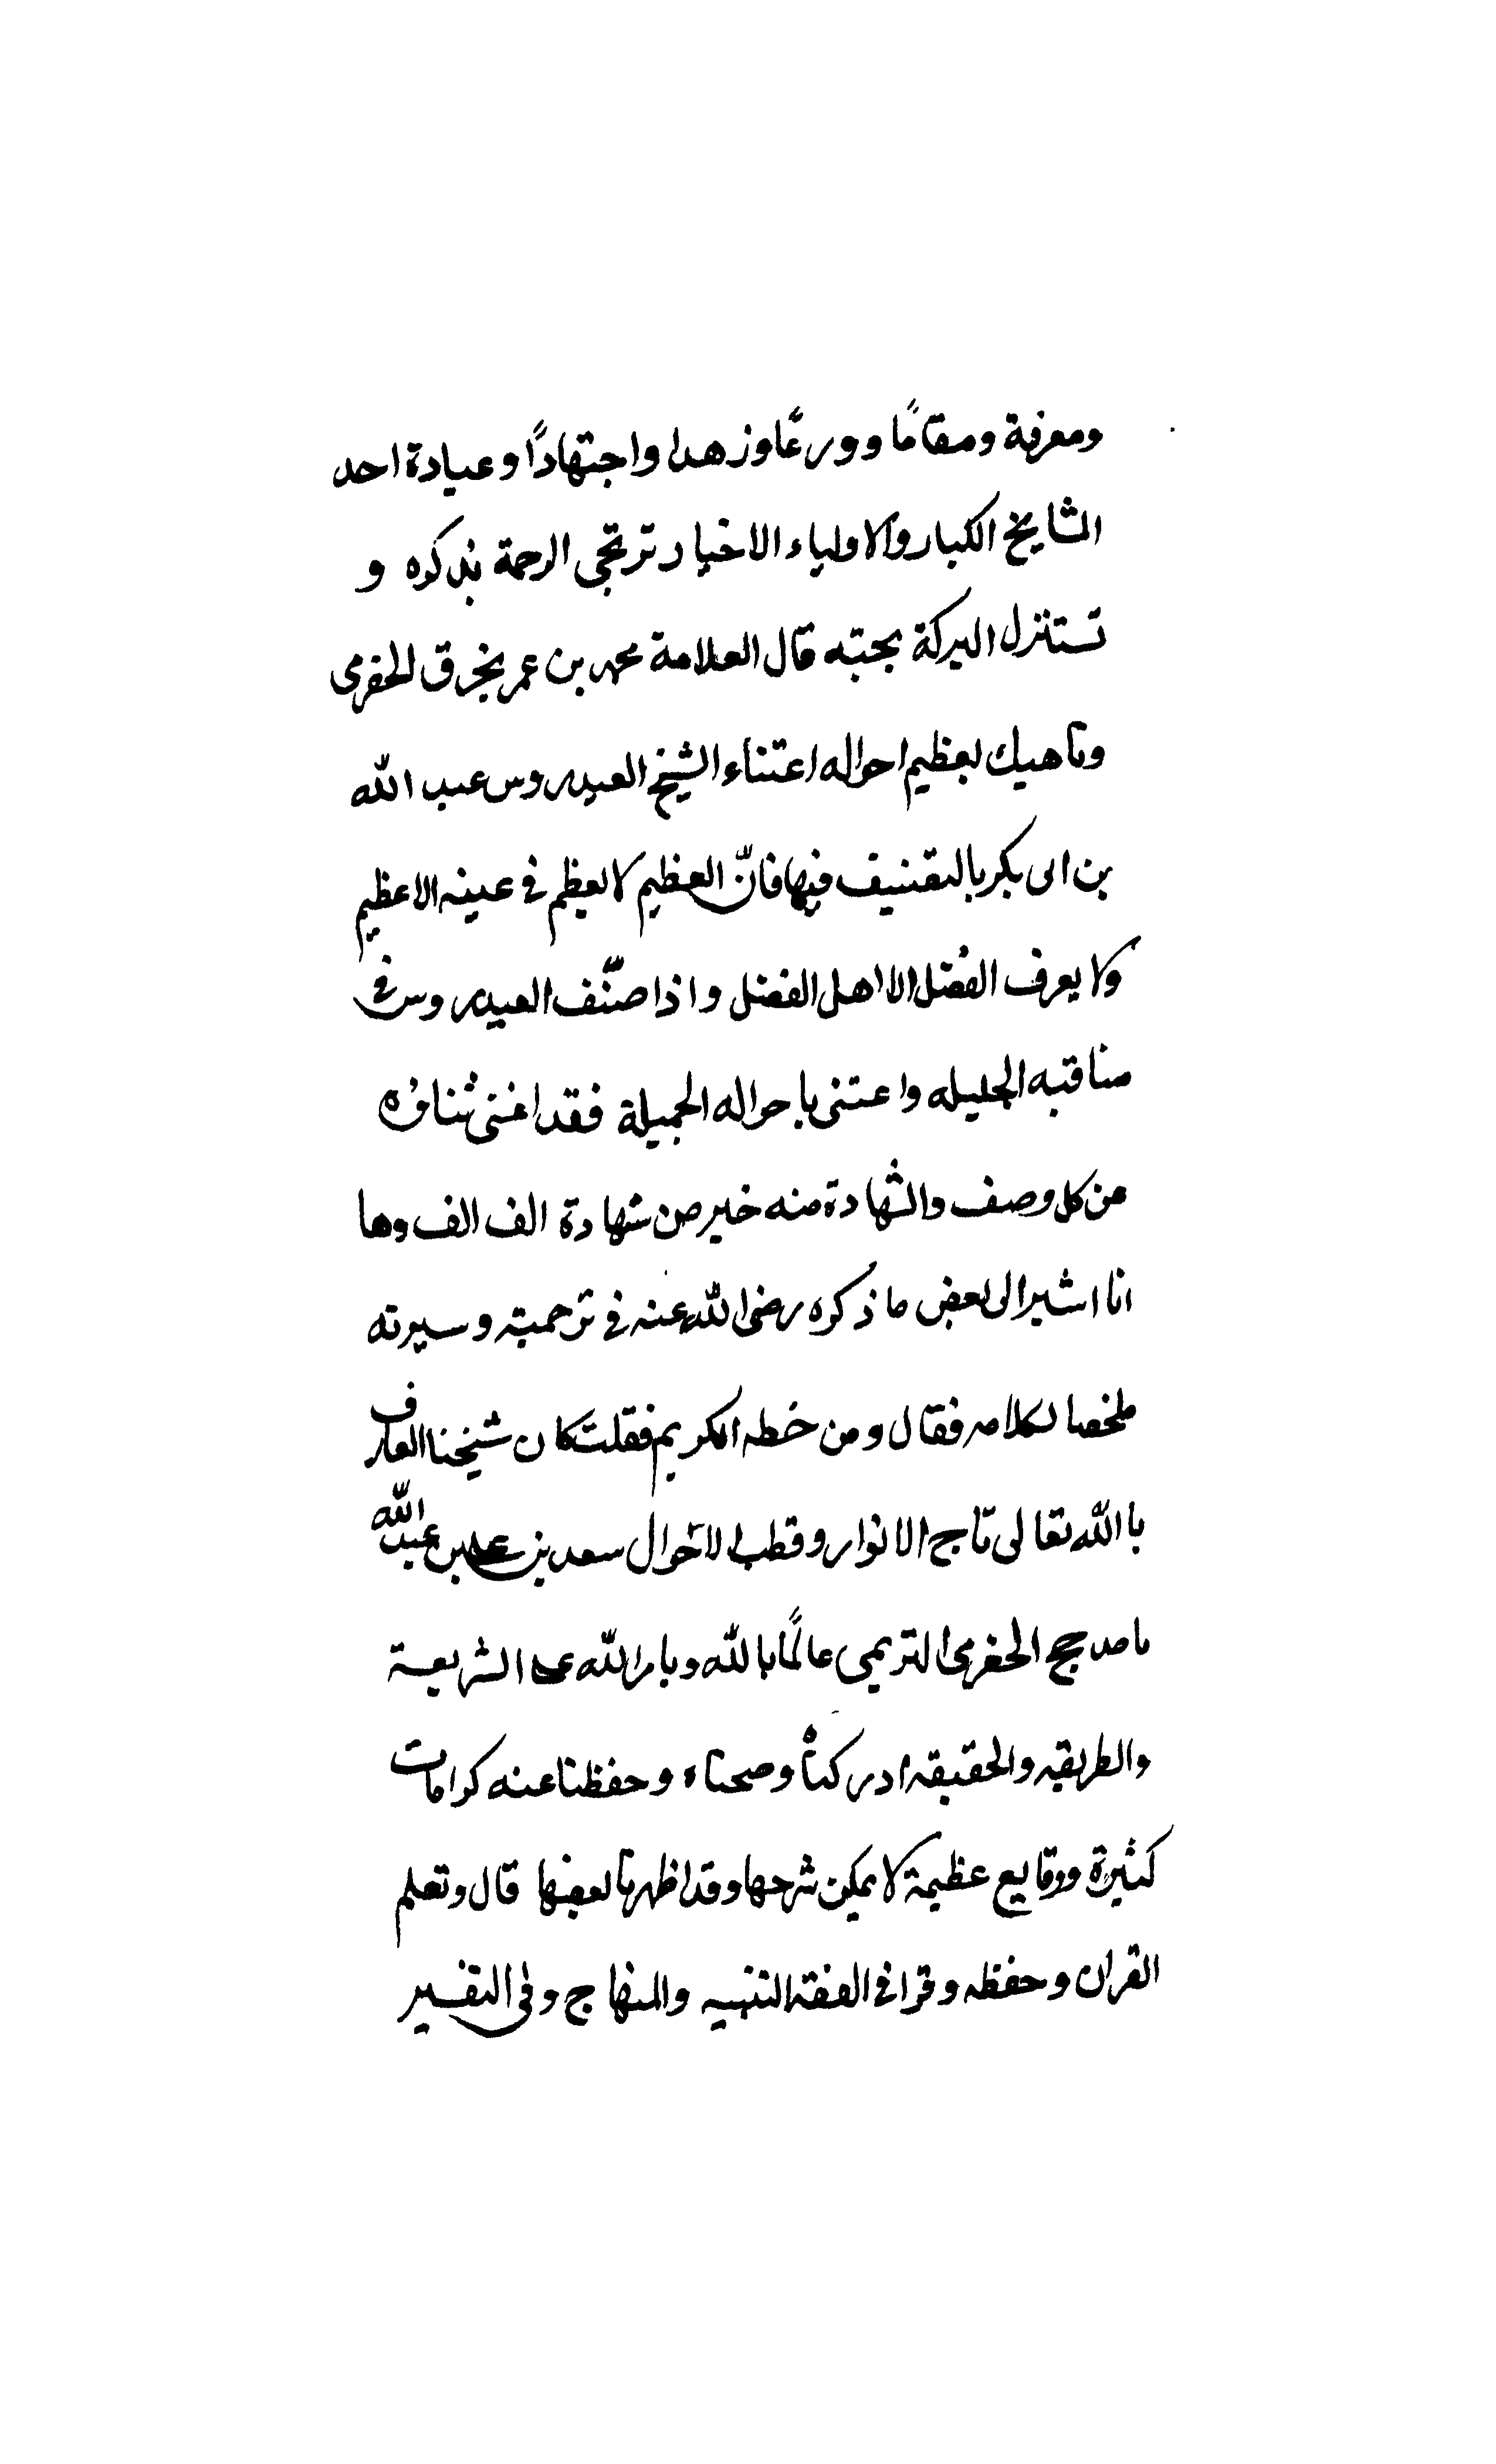 ومعرفة ومقامًا وورعًا وزهدا واجتهادًا وعبادة احد
المشايخ الكبار والاولياء الاخيار ترتجى الرحمة بذكره و
تستنزل البركة بمحبته قال العلامة محمد بن عمر بحرق الحضرمى
وناهيك بعظيم احواله اعتناء الشيخ العيدروس عبد الله
بن ابى بكر بالتصنيف فيها فانّ العظيم لا يعظم في عينه الا عظيم
ولا يعرف الفضل الا اهل الفضل واذا صنّف العيدروس في
مناقبه الجليله واعتنى باحواله الجميلة فقد اغنى ثناؤه
عن كل وصف والشهادة منه خير من شهادة الف الف وها
انا اشير الى بعض ما ذكره رضى الله عنه في ترجمته وسيرته
ملخصا لكلامه فقال ومن خطه الكريم فقلت كان شيخنا العارف
با الله تعالى تاج الانوار وقطب الاحوال سعد بن على بن عبد الله
مامدحج الحضرمى التريمى عالمًا بالله وبامر الله على الشريعة
والطريقه والحقيقه ادركناه وصحبناه وحفظنا عنه كرامات
كثيرة ووقايع عظيمة لا يمكن شرحها وقد اظهرنا بعضها قال وتعلم
القران وحفظه وقرا في الفقه التنبيه والمنهاج وفى التفسير